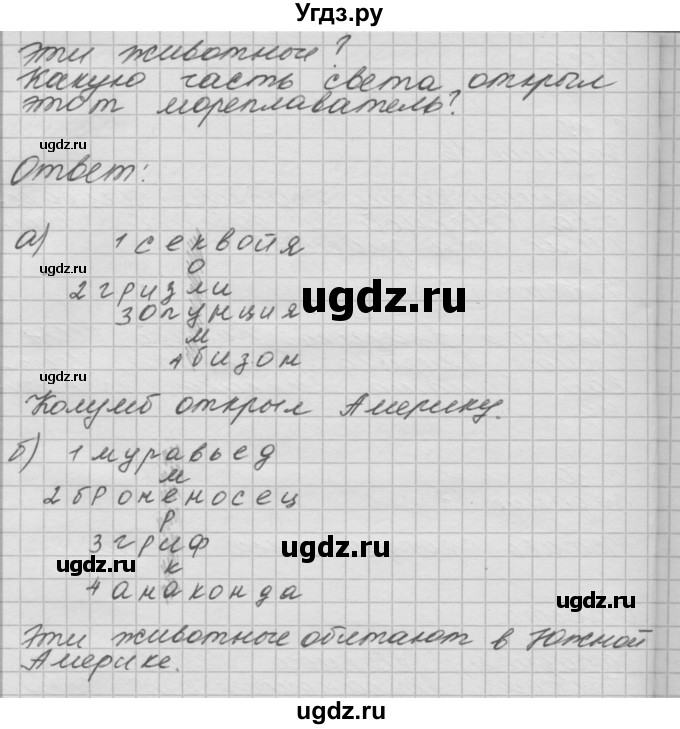 Угдз.ру
эти животные?
Какую часть света открыл
этот мореплаватель?
ugdz.ru
Ответ:
ugdz.ru
ugdz.ru
а) 1 секвойя
о
ugdz.ru
2 гризли
ugdz.ru
3 опунция
м
4 бизон
ugdz.ru
Колумб открыл Америку.
б) 1 муравьед
м
2 броненосец
р
3 гриф
ugdz.ru
ugdz.ru
к
4 анаконда
ugdz.ru
Эти животные обитают в Южной
Америке.
ugdz.ru
ugdz.ru